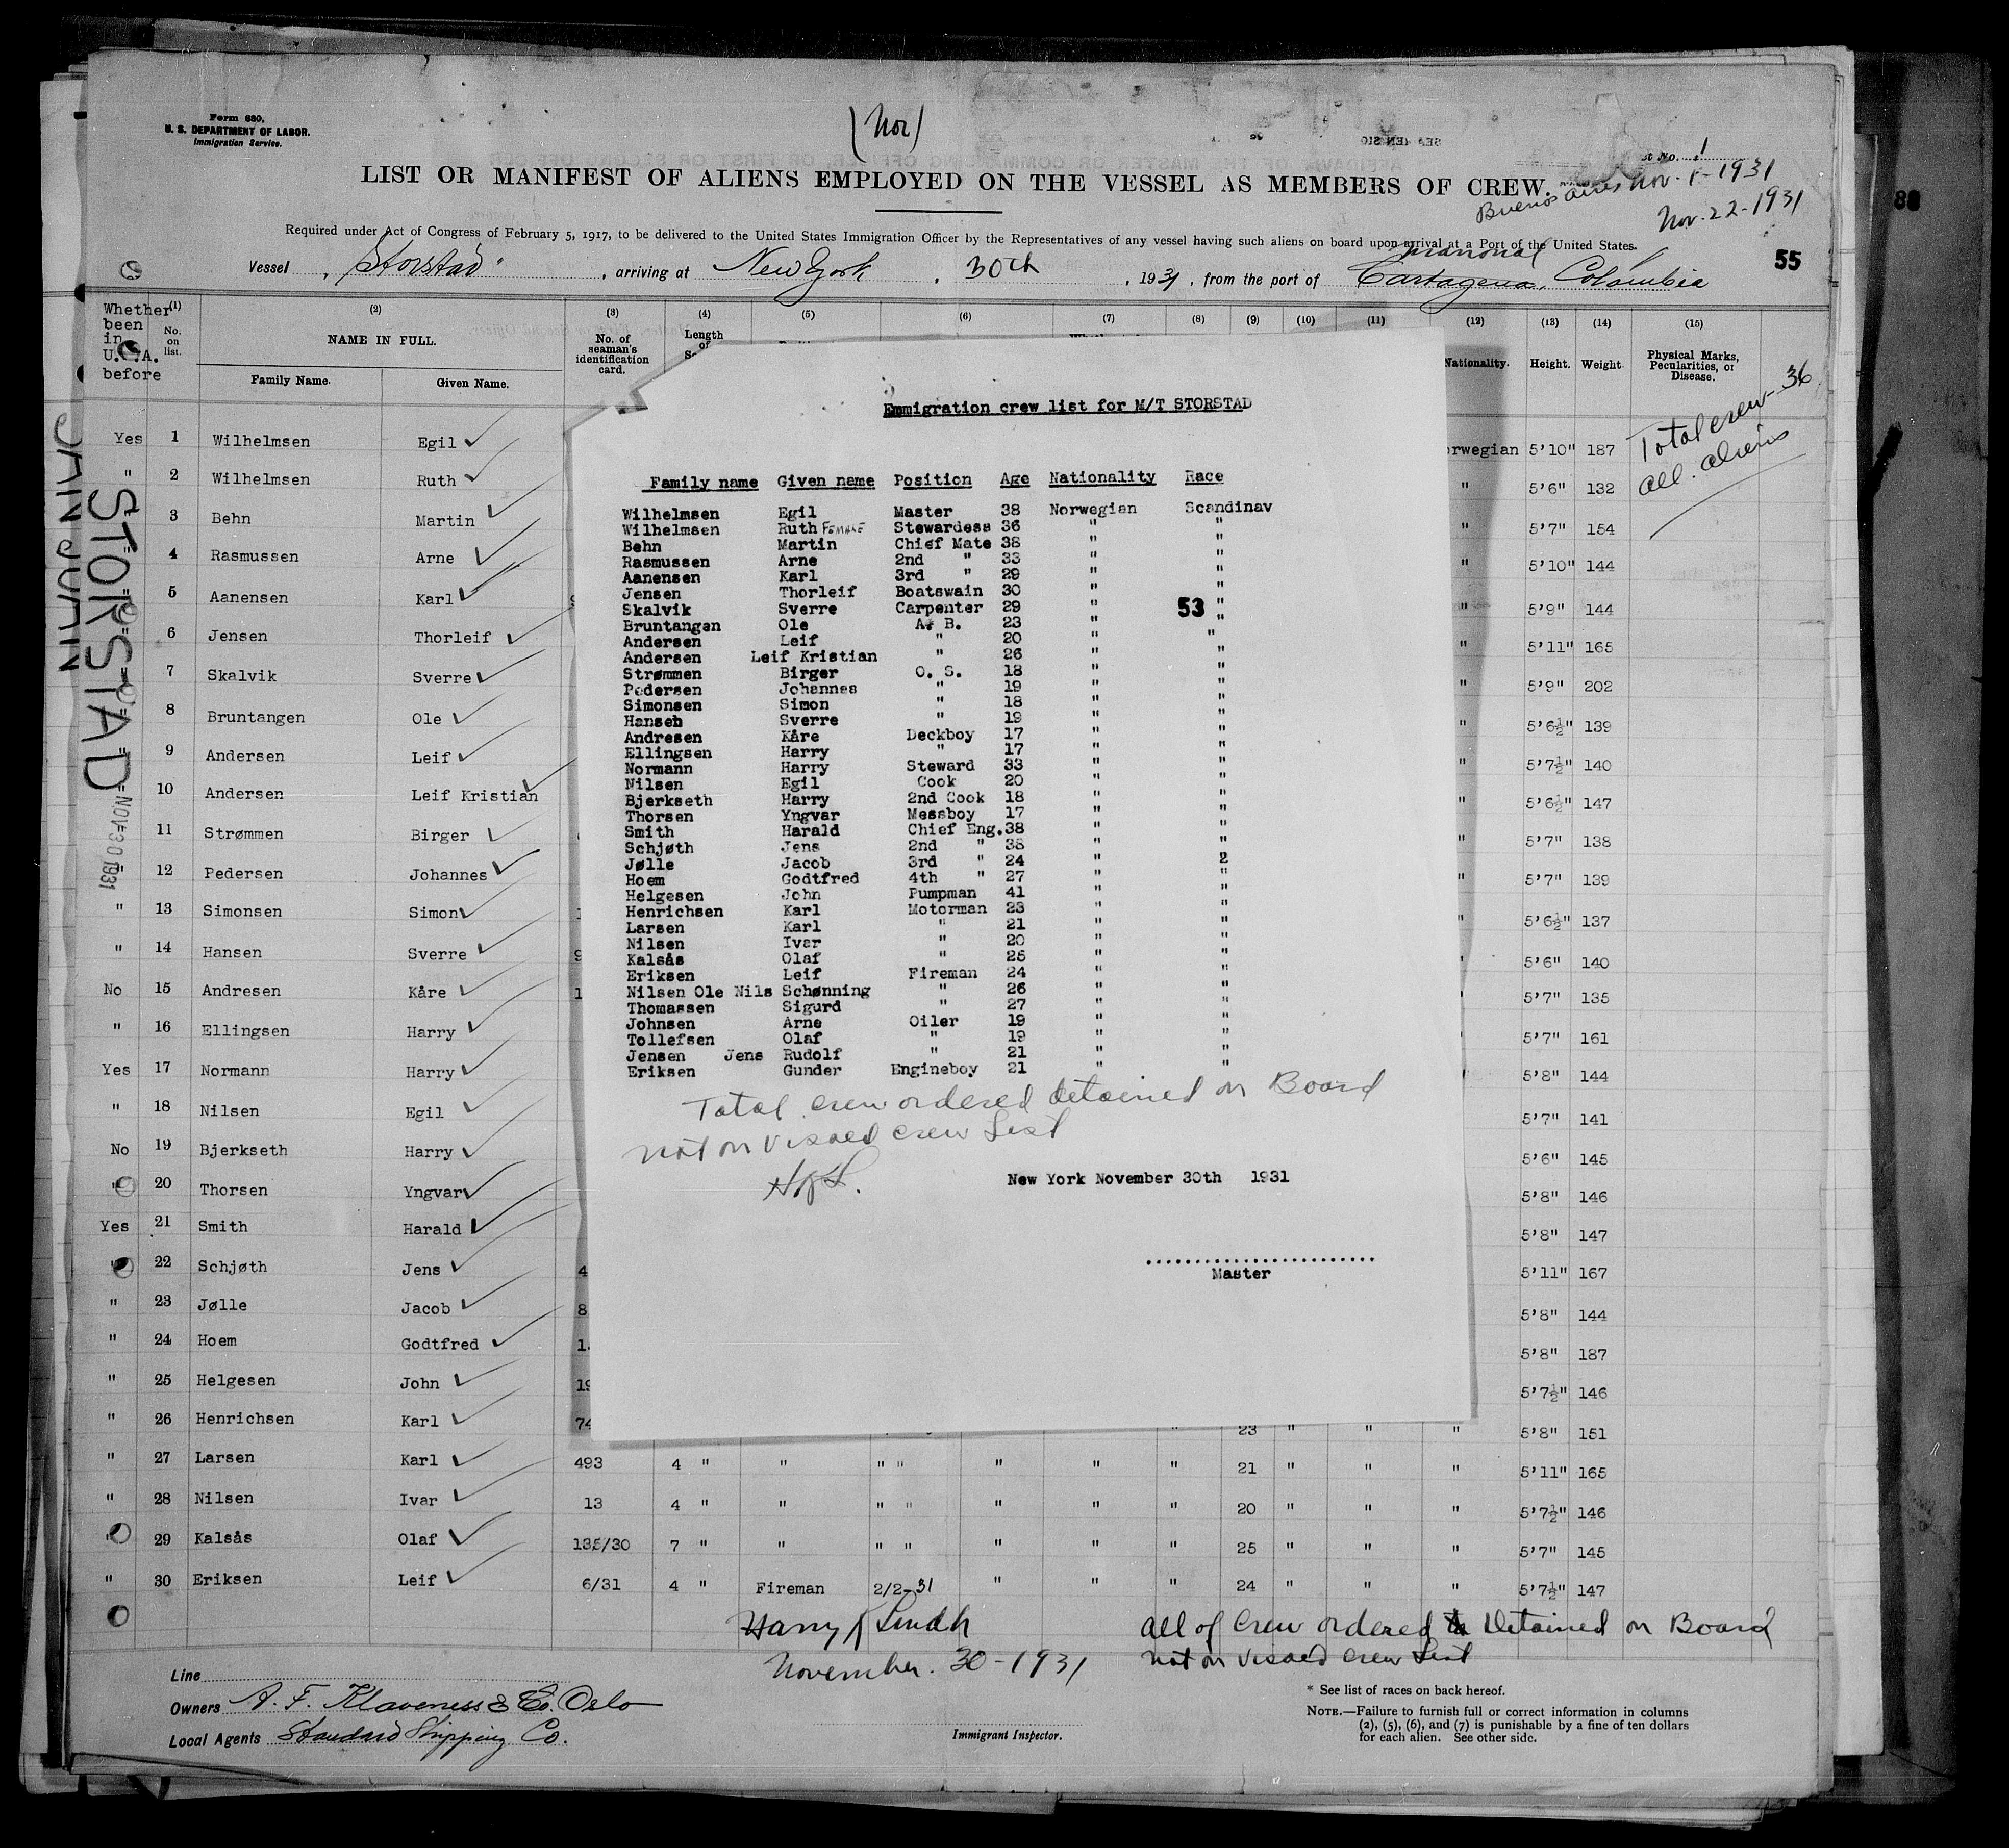 Form 680,
U. S. DEPARTMENT OF LABOR.
Immigration Service.
(Nor)
st No. 1
LIST OR MANIFEST OF ALIENS EMPLOYED ON THE VESSEL AS MEMBERS OF CREW.
Buenos Aires Nov. 1-1931
Nov. 22-1931
Required under Act of Congress of February 5, 1917, to be delivered to the United States Immigration Officer by the Representatives of any vessel having such aliens on board upon arrival at a Port of the United States.
Mamonal
Vessel "Storstad", arriving at New York, 30th, 1931, from the port of Cartagena, Colombia
55
88
Whether been in U.S.A. before
(1) No. on list.
(2) NAME IN FULL.
Family Name. Given Name.
(3) No. of seaman's identification card.
(4) Length of
(5) (6) (7) (8) (9) (10) (11)
(12) Nationality.
(13) Height.
(14) Weight
(15) Physical Marks, Pecularities, or Disease.
Total crew - 36
all. aliens
Yes 1 Wilhelmsen Egil orwegian 5'10" 187
" 2 Wilhelmsen Ruth " 5'6" 132
3 Behn Martin " 5'7" 154
4 Rasmussen Arne " 5'10" 144
5 Aanensen Karl " 5'9" 144
6 Jensen Thorleif " 5'11" 165
7 Skalvik Sverre " 5'9" 202
8 Bruntangen Ole " 5'6½" 139
9 Andersen Leif " 5'7½" 140
10 Andersen Leif Kristian " 5'6½" 147
11 Strømmen Birger " 5'7" 138
12 Pedersen Johannes " 5'7" 139
" 13 Simonsen Simon " 5'6½" 137
" 14 Hansen Sverre 5'6" 140
No 15 Andresen Kåre 5'7" 135
" 16 Ellingsen Harry 5'7" 161
Yes 17 Normann Harry 5'8" 144
" 18 Nilsen Egil 5'7" 141
No 19 Bjerkseth Harry 5'6" 145
" 20 Thorsen Yngvar 5'8" 146
Yes 21 Smith Harald 5'8" 147
" 22 Schjøth Jens 4 5'11" 167
" 23 Jølle Jacob 8 5'8" 144
" 24 Hoem Godtfred 1 5'8" 187
" 25 Helgesen John 19 5'7½" 146
" 26 Henrichsen Karl 74 23 " " " 5'8" 151
" 27 Larsen Karl 493 4 " " " " " " " 21 " " " 5'11" 165
" 28 Nilsen Ivar 13 4 " " " " " " " 20 " " " 5'7½" 146
" 29 Kalsås Olaf 135/30 7 " " " " " " " 25 " " " 5'7" 145
" 30 Eriksen Leif 6/31 4 " Fireman 2/2-31 " " " 24 " " " 5'7½" 147
STORSTAD
SAN JUAN
NOV 30 1931
Emmigration crew list for M/T STORSTAD
Family name Given name Position Age Nationality Race
Wilhelmsen Egil Master 38 Norwegian Scandinav
Wilhelmsen Ruth FEMALE Stewardess 36 " "
Behn Martin Chief Mate 38 " "
Rasmussen Arne 2nd " 33 " "
Aanensen Karl 3rd " 29 " "
Jensen Thorleif Boatswain 30 " "
Skalvik Sverre Carpenter 29 " 53 "
Bruntangen Ole A. B. 23 " "
Andersen Leif " 20 " "
Andersen Leif Kristian " 26 " "
Strømmen Birger O. S. 18 " "
Pedersen Johannes " 19 " "
Simonsen Simon " 18 " "
Hanseh Sverre " 19 " "
Andresen Kåre Deckboy 17 " "
Ellingsen Harry " 17 " "
Normann Harry Steward 33 " "
Nilsen Egil Cook 20 " "
Bjerkseth Harry 2nd Cook 18 " "
Thorsen Yngvar Messboy 17 " "
Smith Harald Chief Eng. 38 " "
Schjøth Jens 2nd " 38 " "
Jølle Jacob 3rd " 24 " 2
Hoem Godtfred 4th " 27 " "
Helgesen John Pumpman 41 " "
Henrichsen Karl Motorman 23 " "
Larsen Karl " 21 " "
Nilsen Ivar " 20 " "
Kalsås Olaf " 25 " "
Eriksen Leif Fireman 24 " "
Nilsen Ole Nils Schønning " 26 " "
Thomassen Sigurd " 27 " "
Johnsen Arne Oiler 19 " "
Tollefsen Olaf " 19 " "
Jensen Jens Rudolf " 21 " "
Eriksen Gunder Engineboy 21 " "
Total crew ordered detained on Board
not on visaed crew List
New York November 30th 1931
Master
Harry Lindh
November. 30-1931
all of crew ordered Detained on Board
not on visaed crew List
Line
Owners A. F. Klaveness & Co. Oslo
Local Agents Standard Shipping Co.
Immigrant Inspector.
* See list of races on back hereof.
NOTE.—Failure to furnish full or correct information in columns
(2), (5), (6), and (7) is punishable by a fine of ten dollars
for each alien. See other side.